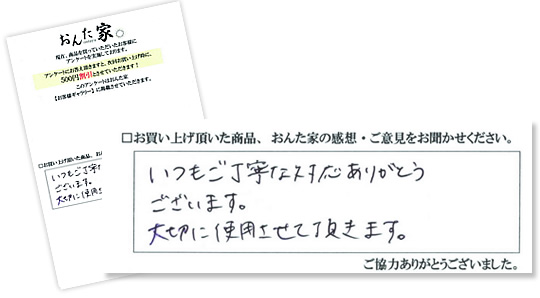 おんた家。
現在、商品を買っていただいたお客様に
アンケートを実施しております。
アンケートにお答え頂きますと、次回お買い上げ時に、
500円割引とさせていただきます!
このアンケートはおんた家
【お客様ギャラリー】に掲載させていただきます。
□お買い上げ頂いた商品、お
いつもご丁寧な
ございます。
大切に使用さ
□お買い上げ頂いた商品、おんた家の感想・ご意見をお聞かせください。
いつもご丁寧な対応ありがとう
ございます。
大切に使用させて頂きます。
ご協力ありがとうございました。